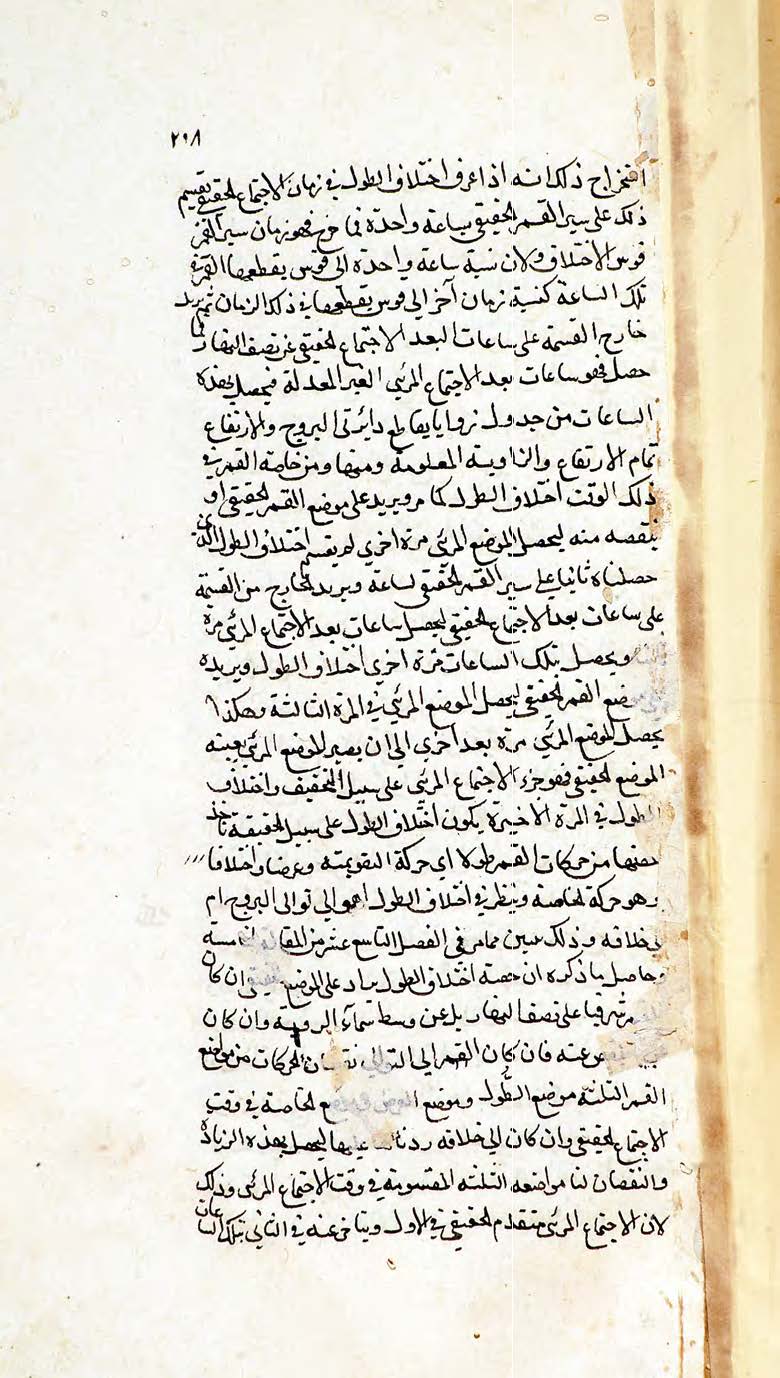 ٢٩٨
استخراج ذلك انه اذا عرف اختلاف الطول في زمان الاجتماع الحقيقي يقسم
ذلك على سير القمر الحقيقي بساعة واحدة فما خرج فهو زمان سير القمر
قوس الاختلاف ولان نسبة ساعة واحدة الى قوس يقطعها القمر في
تلك الساعة كنسبة زمان آخر الى قوس يقطعها في ذلك الزمان ثم يزيد
خارج القسمة على ساعات البعد الاجتماع الحقيقي عن نصف النهار فما
حصل فهو ساعات بعد الاجتماع المرئي الغير المعدلة فيحصل بهذه
الساعات من جدول زوايا يقاطع دائرتى البروج والارتفاع
تمام الارتفاع والزاوية المعلومة ومنها ومن خاصة القمر في
ذلك الوقت اختلاف الطول كما مر ويزيد على موضع القمر الحقيقي او
ينقصه منه ليحصل الموضع المرئي مرة اخرى ثم يقسم اختلاف الطول الذي
حصلناه ثانيا على سير القمر الحقيقي لساعة ويزيد الخارج من القسمة
على ساعات بعد الاجتماع الحقيقي ليحصل ساعات بعد الاجتماع المرئي مرة
ويحصل بتلك الساعات مرة اخرى اختلاف الطول ويزيده
موضع القمر الحقيقي ليحصل الموضع المرئي في المرة الثالثة وهكذا
يحصل الموضع المرئي مرة بعد اخرى الى ان يصير الموضع المرئي بعينه
الموضع الحقيقي فهو جزء الاجتماع المرئي على سبيل التحقيق واختلاف
الطول في المرة الاخيرة يكون اختلاف الطول على سبيل الحقيقة ناخذ
حصتها من حركات القمر طولا اى حركة التقويمية وعرضا واختلافا
وهو حركة الخاصة وينظر في اختلاف الطول اهو الى توالى البروج ام
بخلافه وذلك يبين مما مر في الفصل التاسع عشر من المقالة الخامسة
وحاصل ما ذكره ان حصة اختلاف الطول يزاد على الموضع الحقيقي ان كان
شرقيا على نصف النهار بل عن وسط سماء الروية وان كان
عنه فان كان القمر الى التوالى الحركات من مواضع
القمر الثلثة موضع الطول وموضع العرض وموضع الخاصة في وقت
الاجتماع الحقيقي وان كان الى خلافه زدنا عليها ليحصل بهذه الزيادة
والنقصان لنا مواضعه الثلثة المقسومة في وقت الاجتماع المرئي وذلك
لان الاجتماع المرئي متقدم الحقيقي في الاول ويتاخر عنه في الثاني بتلك الساعات